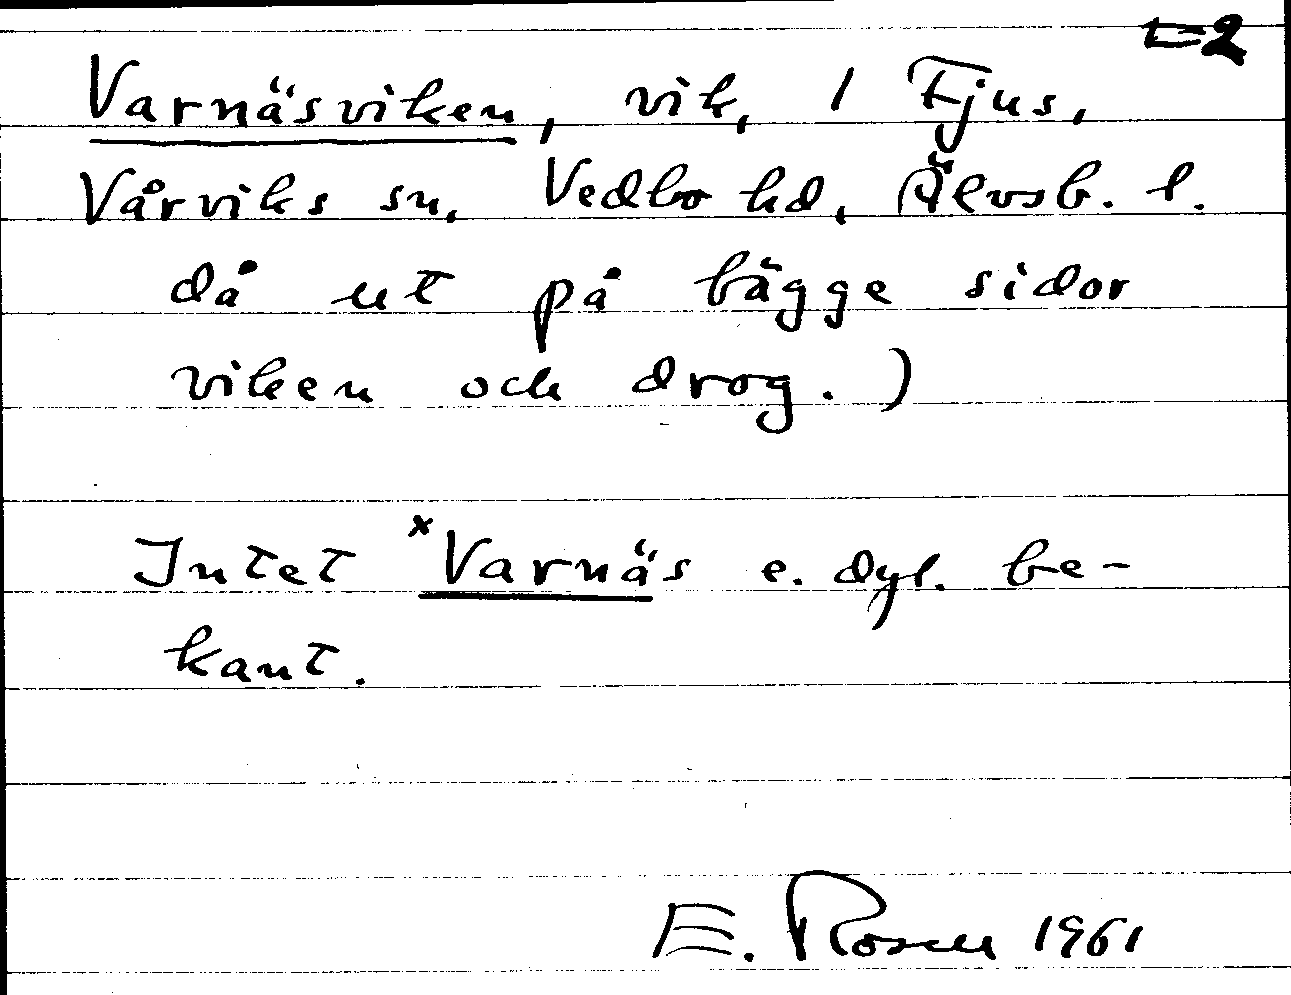 =2
Varnäsviken, vik, 1 Fjus,
Vårviks sn, Vedbo hd, Älvsb. l.
då ut på bägge sidor
viken och drog.)
Intet ˣVarnäs e. dyl. be-
kant.
E. Rosen 1961